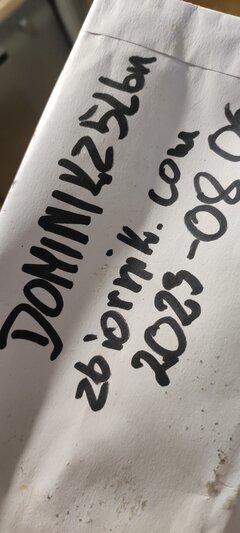 DOMINIKZ5Lbn
zbiornik.com
2023-08 06